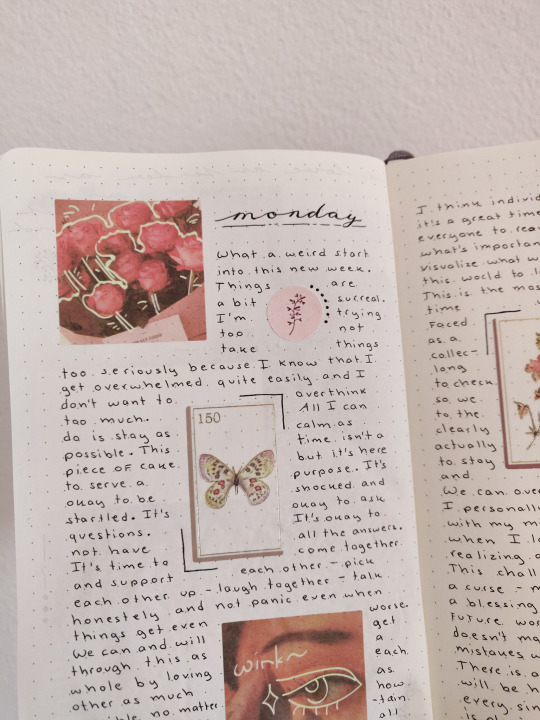 monday
what a weird start
into this new week.
Things are
a bit surreal.
I'm trying
too not
take things
too seriously because I know that I
get overwhelmed quite easily and I
don't want to overthink
too much. All I can
do is stay as calm as
possible. This time isn't a
piece of cake but it's here
to serve a purpose. It's
okay to be shocked and
startled. It's okay to ask
questions. It's okay to
not have all the answers.
It's time to come together.
and support each other - pick
each other up - laugh together - talk
honestely and not panic even when
things get even worse.
We can and will get
through this as a
whole by loving each
other as much as
no matter how
-tain
all
150
wink~
I think
it's a great time
everyone to
what's
visualize what
this world to
This is the
time
Faced
as a
collec-
long
to check
so we
to the
clearly
actually
to stay
and
We can
I personally
with my
when I
realizing
This
a curse -
a blessing
Future
doesn't
mistakes
There is
will be
every